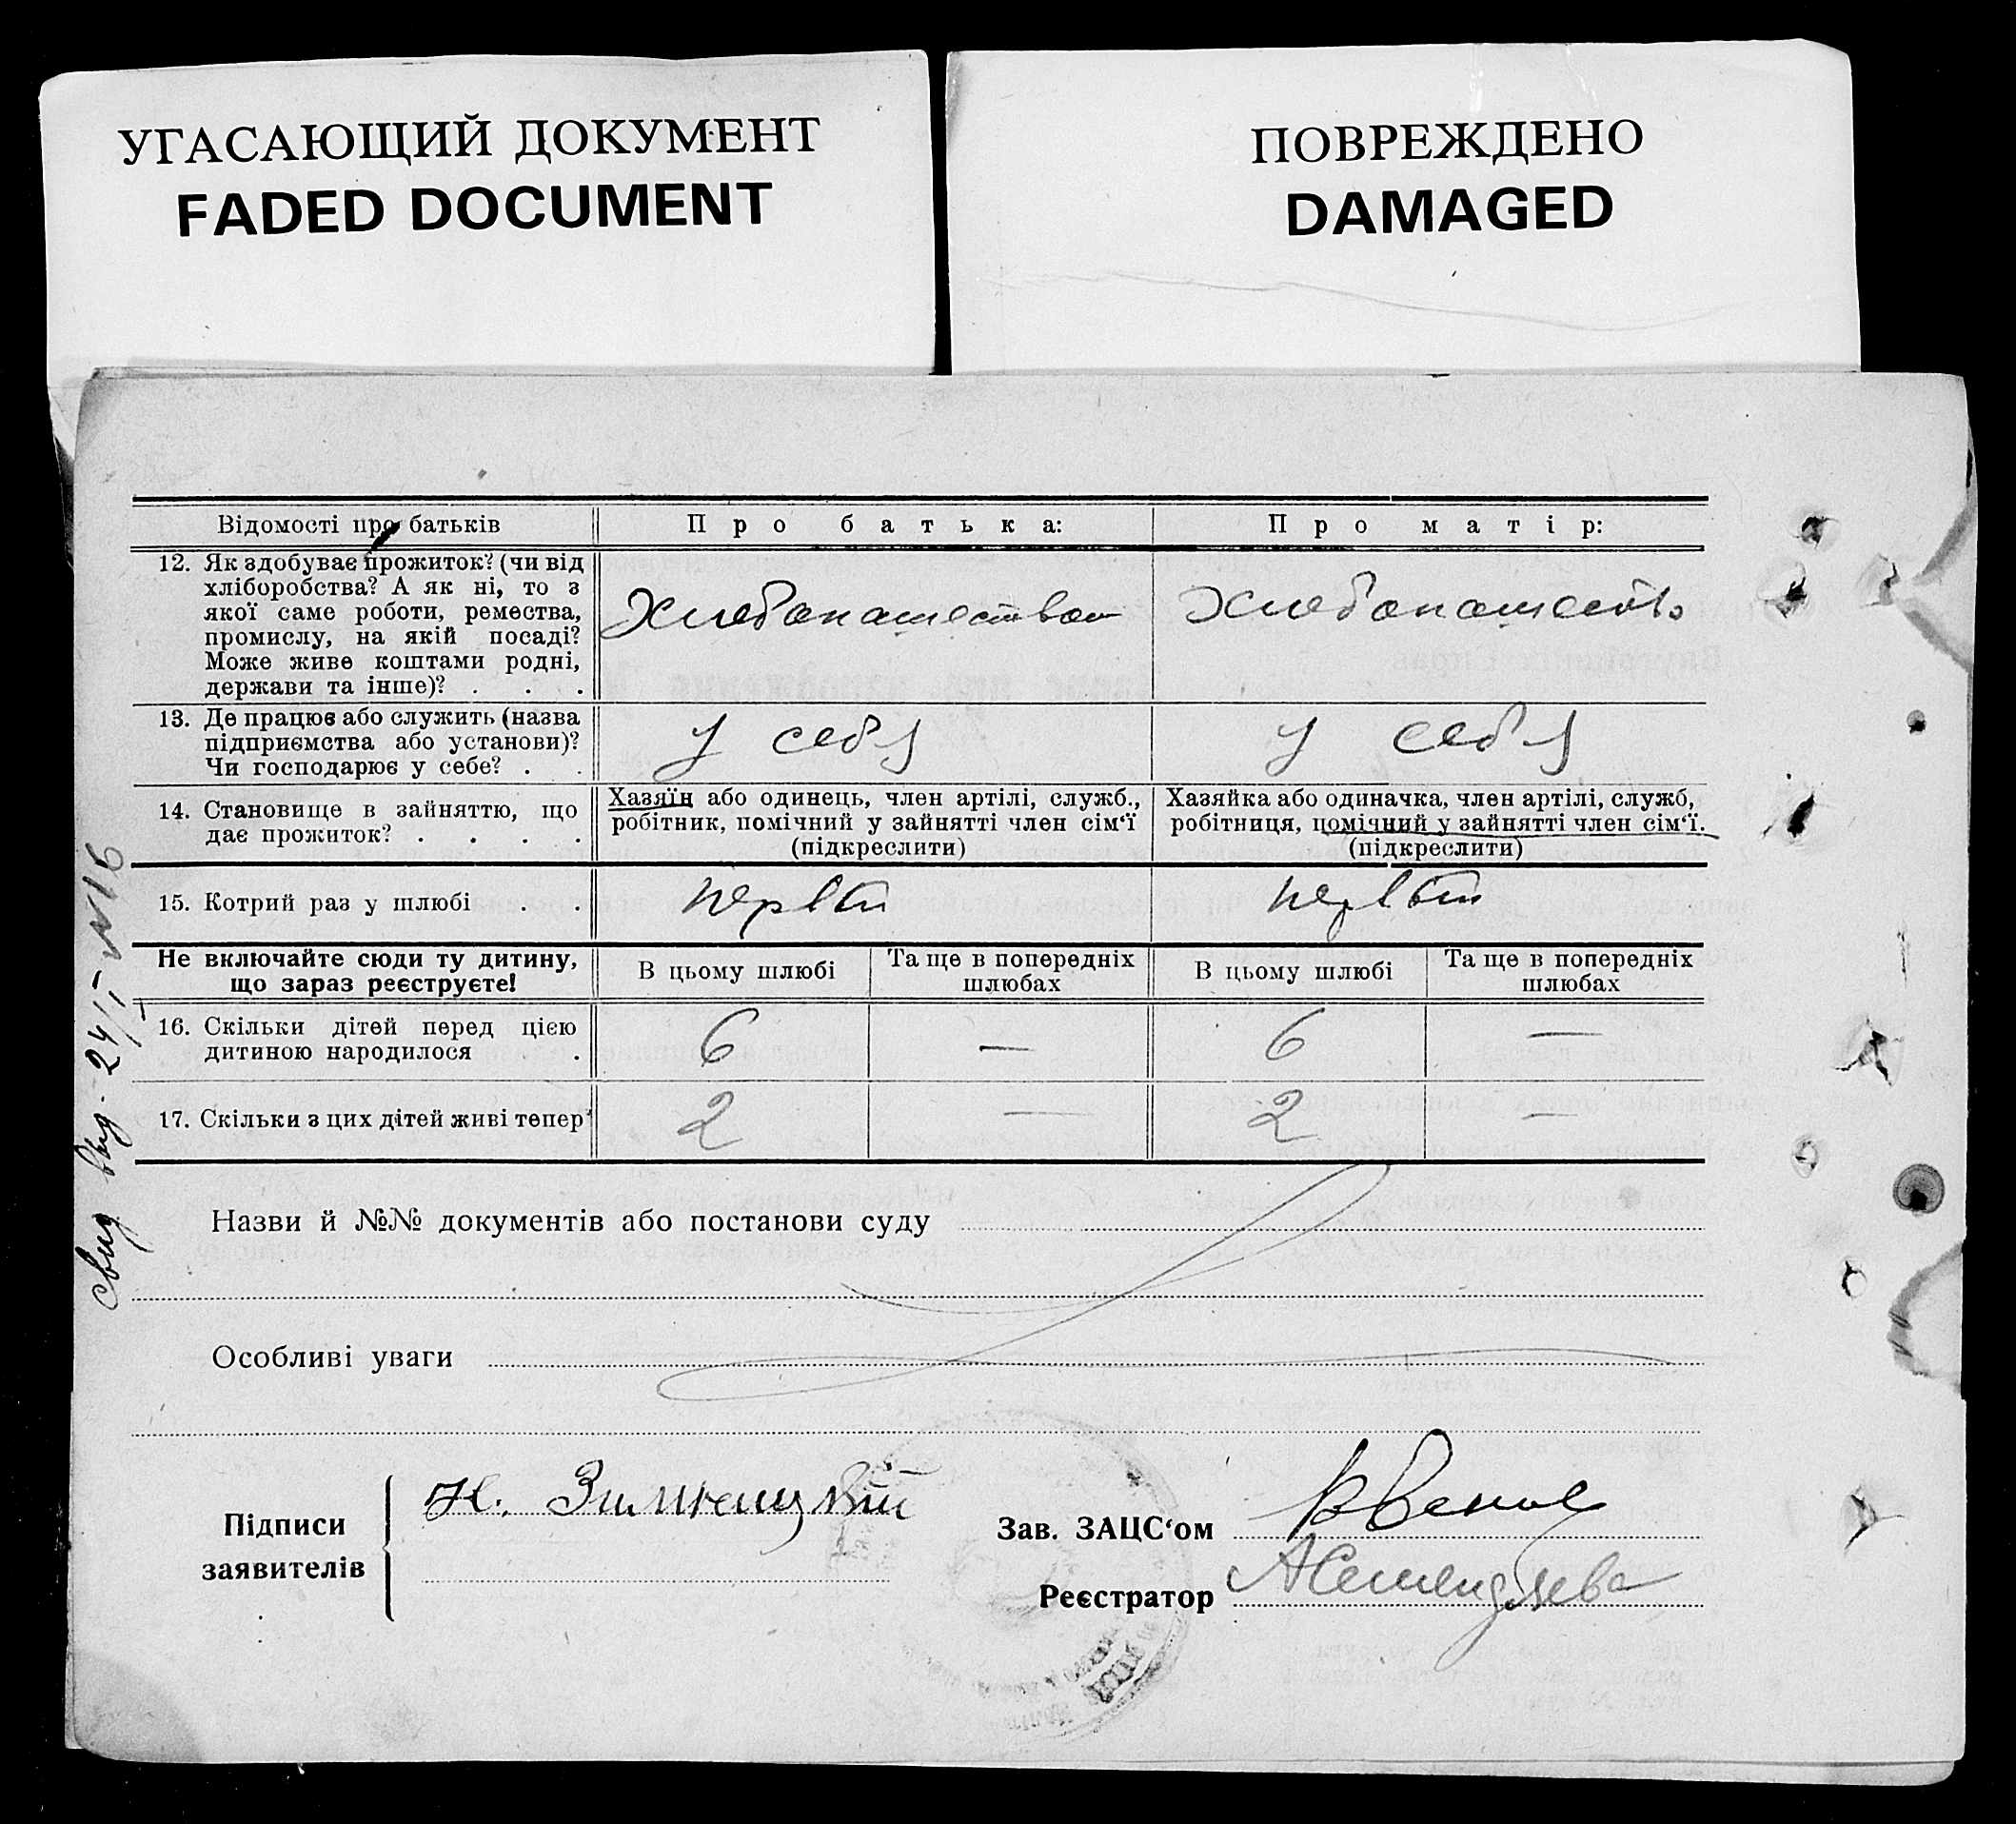 УГАСАЮЩИЙ ДОКУМЕНТ
FADED DOCUMENT
ПОВРЕЖДЕНО
DAMAGED
Відомості про батьків
Про батька:
Про матір:
12. Як здобуває прожиток? (чи від
хліборобства? А як ні, то з
якої саме роботи, ремества,
промислу, на якій посаді?
Може живе коштами родні,
держави та інше)? . . .
Хлебопашеством
Хлебопашеств
13. Де працює або служить (назва
підприємства або установи)?
Чи господарює у себе? . .
у себя
у себя
14. Становище в зайняттю, що
дає прожиток? . . . .
Хазяїн або одинець, член артілі, служб.,
робітник, помічний у зайнятті член сім'ї
(підкреслити)
Хазяйка або одиначка, член артілі, служб,
робітниця, помічний у зайнятті член сім'ї.
(підкреслити)
15. Котрий раз у шлюбі . .
первый
первый
Не включайте сюди ту дитину,
що зараз реєструєте!
В цьому шлюбі
Та ще в попередніх
шлюбах
В цьому шлюбі
Та ще в попередніх
шлюбах
16. Скільки дітей перед цією
дитиною народилося .
6 — 6 —
17. Скільки з цих дітей живі тепер
2 — 2 —
Назви й №№ документів або постанови суду
Особливі уваги
Підписи
заявителів
Н.
Зав. ЗАЦС'ом
Реєстратор
свид выд. 24/I №16